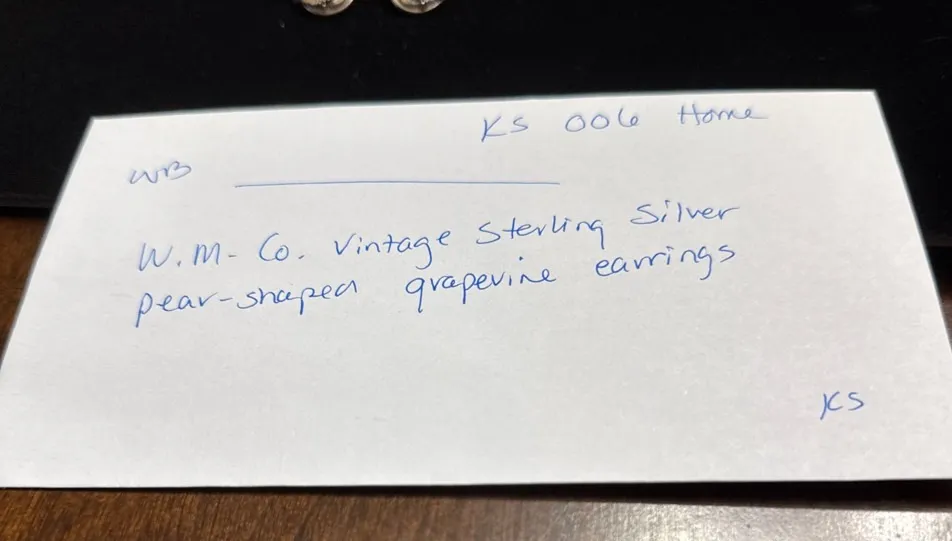 KS 006 Home
WB
W.M. Co. Vintage Sterling Silver
pear-shaped grapevine earrings
KS